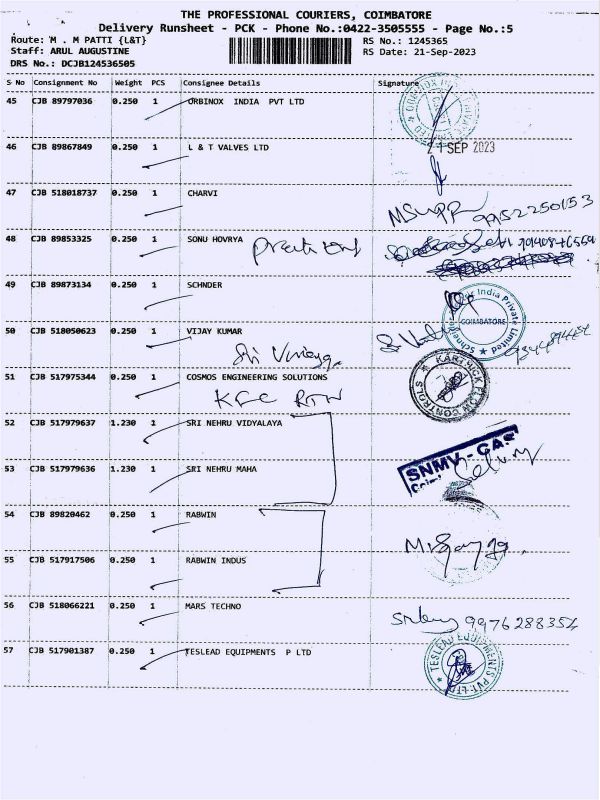 THE PROFESSIONAL COURIERS, COIMBATORE
Delivery Runsheet - PCK - Phone No.:0422-3505555 - Page No.:5
Route: M . M PATTI {L&T}
RS No.: 1245365
Staff: ARUL AUGUSTINE
RS Date: 21-Sep-2023
DRS No.: DCJB124536505
S No Consignment No Weight PCS Consignee Details Signature
45 CJB 89797036 0.250 1 ORBINOX INDIA PVT LTD
46 CJB 89867849 0.250 1 L & T VALVES LTD
21 SEP 2023
47 CJB 518018737 0.250 1 CHARVI
9952250153
48 CJB 89853325 0.250 1 SONU HOVRYA
49 CJB 89873134 0.250 1 SCHNDER
India Private Limited
COIMBATORE
50 CJB 518050623 0.250 1 VIJAY KUMAR
51 CJB 517975344 0.250 1 COSMOS ENGINEERING SOLUTIONS
KARTHICK FLOW CONTROLS
52 CJB 517979637 1.230 1 SRI NEHRU VIDYALAYA
SNMV - CAS
53 CJB 517979636 1.230 1 SRI NEHRU MAHA
54 CJB 89820462 0.250 1 RABWIN
55 CJB 517917506 0.250 1 RABWIN INDUS
56 CJB 518066221 0.250 1 MARS TECHNO
9976288354
57 CJB 517901387 0.250 1 TESLEAD EQUIPMENTS P LTD
TESLEAD EQUIPMENTS PVT LTD